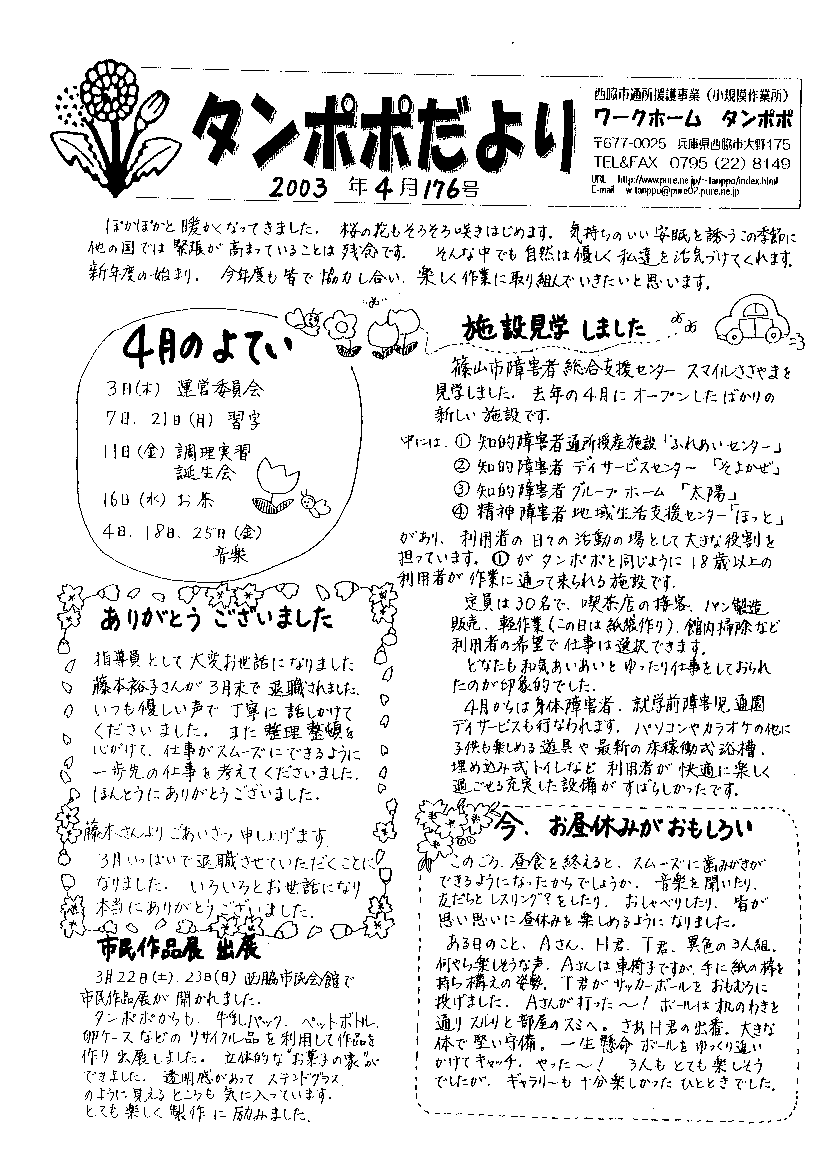 タンポポだより
2003 年4月176号
西脇市通所援護事業（小規模作業所）
ワークホーム　タンポポ
〒677-0025　兵庫県西脇市大野175
TEL&FAX　0795（22）8149
URL　http://www.pure.ne.jp/~tanppo/index.html
E-mail　w.tanppu@pwe02.pure.ne.jp
ぽかぽかと暖かくなってきました。桜の花もそろそろ咲きはじめます。気持ちのいい安眠を誘うこの季節に
他の国では緊張が高まっていることは残念です。そんな中でも自然は優しく私達を活気づけてくれます。
新年度の始まり。今年度も皆で協力し合い、楽しく作業に取り組んでいきたいと思います。
4月のよてい
3日(木)　運営委員会
7日、21日(月)　習字
11日(金)　調理実習
誕生会
16日(水)　お茶
4日、18日、25日(金)
音楽
ありがとうございました
指導員として大変お世話になりました
藤本裕子さんが3月末で退職されました。
いつも優しい声で丁寧に話しかけて
くださいました。また整理整頓を
心がけて、仕事がスムーズにできるように
一歩先の仕事を考えてくださいました。
ほんとうにありがとうございました。
藤本さんよりごあいさつ申し上げます
3月いっぱいで退職させていただくことに
なりました。いろいろとお世話になり
本当にありがとうございました。
市民作品展 出展
3月22日(土)、23日(日)西脇市民会館で
市民作品展が開かれました。
タンポポからも、牛乳パック、ペットボトル、
卵ケースなどのリサイクル品を利用して作品を
作り出展しました。立体的な"お菓子の家"が
できました。透明感があってステンドグラス
のように見えるところも気に入っています。
とても楽しく製作に励みました。
施設見学しました
篠山市障害者総合支援センター スマイルささやまを
見学しました。去年の4月にオープンしたばかりの
新しい施設です。
中には、① 知的障害者通所授産施設「ふれあいセンター」
② 知的障害者 デイサービスセンター「そよかぜ」
③ 知的障害者グループホーム「太陽」
④ 精神障害者地域生活支援センター「ほっと」
があり、利用者の日々の活動の場として大きな役割を
担っています。①がタンポポと同じように18歳以上の
利用者が作業に通って来られる施設です。
定員は30名で、喫茶店の接客、パン製造
販売、軽作業(この日は紙袋作り)、館内掃除など
利用者の希望で仕事は選択できます。
どなたも和気あいあいとゆったり仕事をしておられ
たのが印象的でした。
4月からは身体障害者、就学前障害児通園
デイサービスも行なわれます。パソコンやカラオケの他に
子供も楽しめる遊具や最新の床稼働式浴槽、
埋め込み式トイレなど利用者が快適に楽しく
過ごせる充実した設備がすばらしかったです。
今、お昼休みがおもしろい
このごろ、昼食を終えると、スムーズに歯みがきが
できるようになったからでしょうか、音楽を聞いたり、
友だちとレスリング？をしたり、おしゃべりしたり、皆が
思い思いに昼休みを楽しめるようになりました。
ある日のこと、Aさん、H君、T君、異色の3人組。
何やら楽しそうな声。Aさんは車椅子ですが、手に紙の棒を
持ち構えの姿勢。T君がサッカーボールをおもむろに
投げました。Aさんが打った〜！ボールは机のわきを
通りスルリと部屋のスミへ。さあH君の出番。大きな
体で堅い守備。一生懸命ボールをゆっくり追い
かけてキャッチ。やった〜！3人もとても楽しそう
でしたが、ギャラリーも十分楽しかったひとときでした。